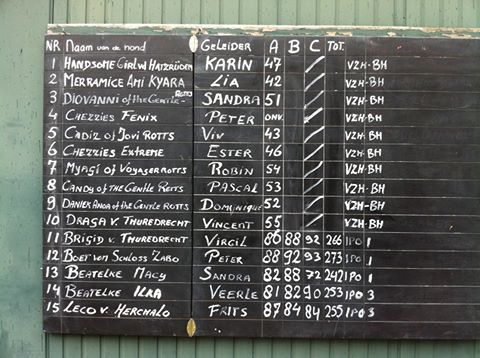 NR Naam van de hond GELEIDER A B C TOT.
1 HANDSOME GIRL V/D HATZRÜDEN KARIN 47 / VZH-BH
2 MERRAMICE AMI KYARA LIA 42 / VZH-BH
3 DIOVANNI of the GENTLE- ROTTS SANDRA 51 / VZH-BH
4 CHEZZIES FENIX PETER ONV. / VZH-BH
5 CADIZ of JOVI ROTTS VIV 43 / VZH-BH
6 CHEZZIES EXTREME ESTER 46 / VZH-BH
7 MYAGI of VOYAGER ROTTS ROBIN 54 / VZH-BH
8 CANDY of the GENTLE ROTTS PASCAL 53 / VZH-BH
9 DANIEK ANOA of the GENTLE ROTTS DOMINIQUE 52 / VZH-BH
10 DRAGA V. THUREDRECHT VINCENT 55 / VZH-BH
11 BRIGID V. THUREDRECHT VIRGIL 86 88 92 266 IPO 1
12 BOET VON SCHLOSS ZABO PETER 88 92 93 273 IPO 1
13 BEATELKE MACY SANDRA 82 88 72 242 IPO 1
14 BEATELKE ILKA VEERLE 81 82 90 253 IPO 3
15 LECO V. HERCHALO FRITS 87 84 84 255 IPO 3